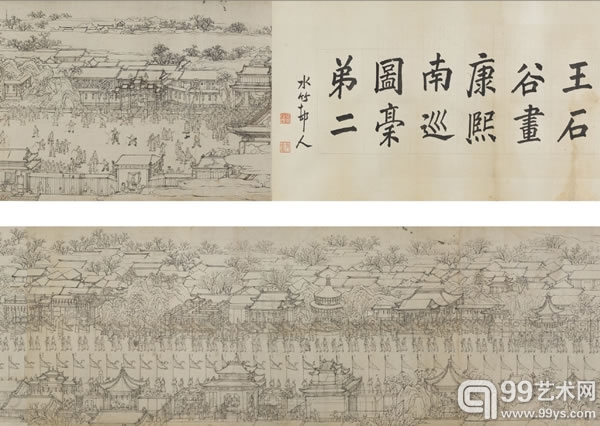 王石
谷畫
康熙
南巡
圖稾
弟二
水竹邨人
99艺术网
www.99ys.com